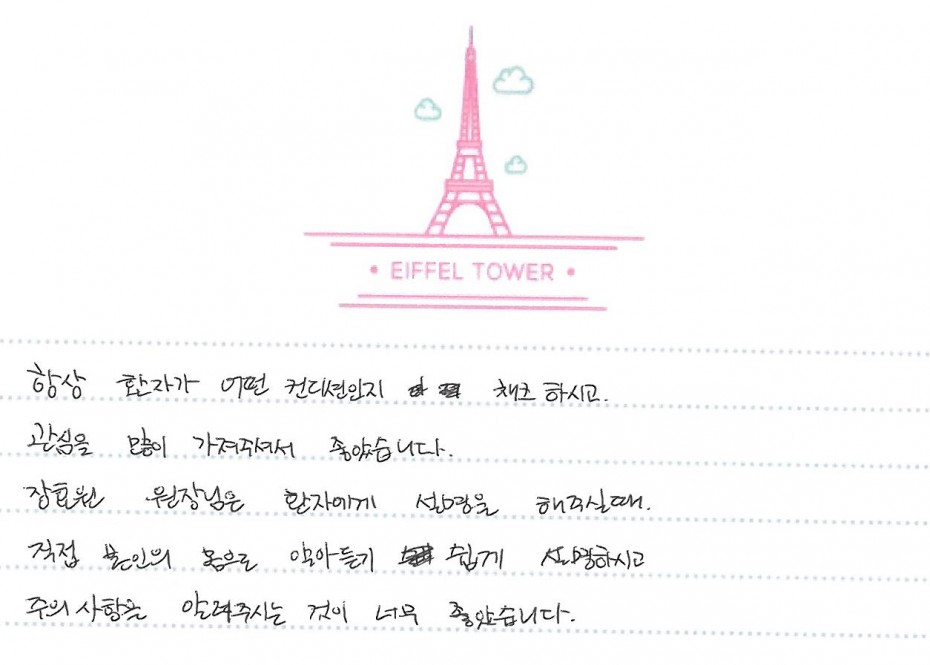 • EIFFEL TOWER •
항상 환자가 어떤 컨디션인지 체크 하시고.
관심을 많이 가져주셔서 좋았습니다.
장효원 원장님은 환자에게 설명을 해주실때.
직접 본인의 몸으로 알아듣기 쉽게 설명하시고
주의 사항을 알려주시는 것이 너무 좋았습니다.